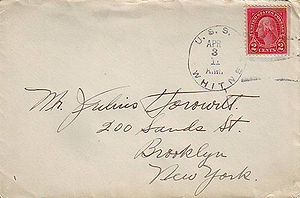 U. S. S.
APR
3
A.M.
WHITNE
2 CENTS 2
Mr. Julius Horowitz
200 Sands St.
Brooklyn
New York.